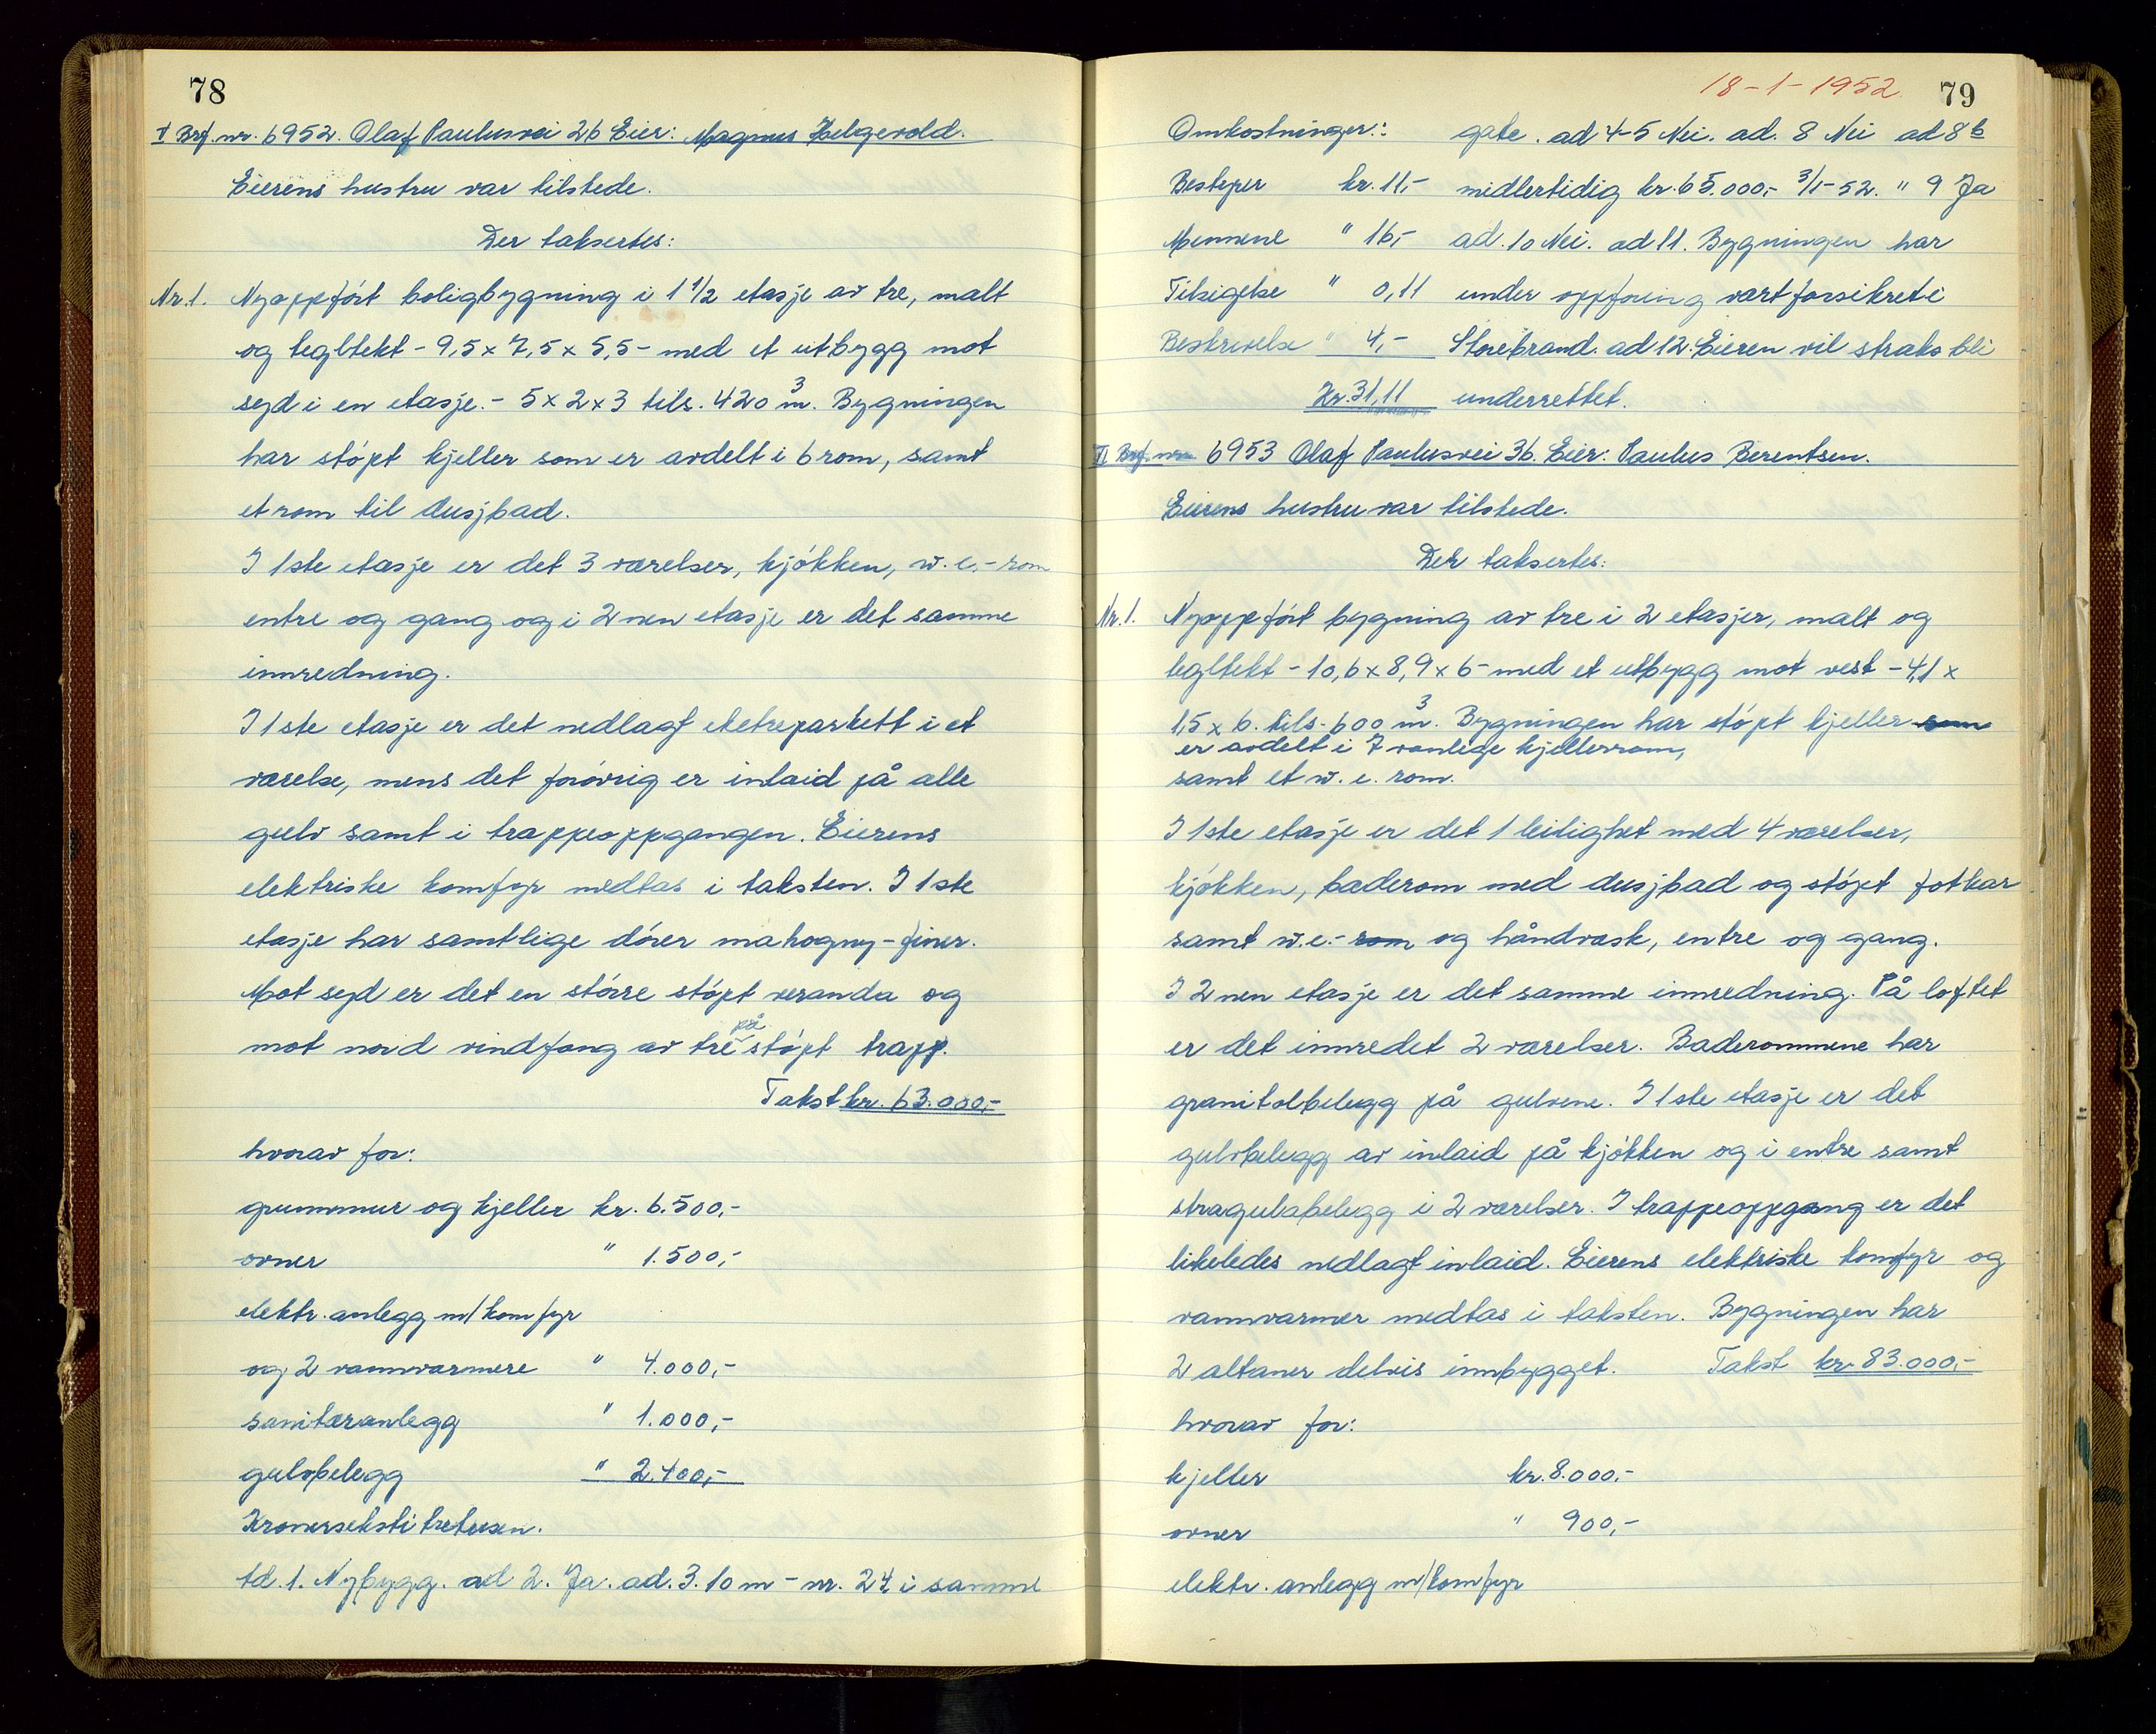 78
V Brf. nr. 6952. Olaf Paulusvei 26 Eier: Magnus Helgevold.
Eierens hustru var tilstede.
Der taksertes:
Nr. 1. Nyoppført boligbygning i 1 1/2 etasje av tre, malt
og tegltekt - 9,5 x 7,5 x 5,5 - med et utbygg mot
syd i en etasje. - 5 x 2 x 3 tils. 420 m³. Bygningen
har støpt kjeller som er avdelt i 6 rom, samt
et rom til dusjbad.
I 1ste etasje er det 3 værelser, kjøkken, w.c.-rom
entre og gang og i 2nen etasje er det samme
innredning.
I 1ste etasje er det nedlagt eketreparkett i et
værelse, mens det forøvrig er inlaid på alle
gulv samt i trappeoppgangen. Eierens
elektriske komfyr medtas i taksten. I 1ste
etasje har samtlige dører mahogny-finer.
Mot syd er det en større støpt veranda og
mot nord vindfang av tre på støpt trapp.
Takst kr. 63.000,-
hvorav for:
grunnmur og kjeller kr. 6.500,-
ovner " 1.500,-
elektr. anlegg m/komfyr
og 2 vannvarmere " 4.000,-
sanitæranlegg " 1.000,-
gulvbelegg " 2.400,-
Kronersekstitretusen.
Ad. 1. Nybygg. ad 2. Ja. ad. 3. 10 m - nr. 24 i samme
18-1-1952
79
Omkostninger: gate. ad 4-5 Nei. ad. 8 Nei ad 8 b
Bestyrer kr. 11,- midlertidig kr. 65.000,- 3/1-52. " 9 Ja
Mennene " 16,- ad. 10 Nei. ad 11. Bygningen har
Tilsigelse " 0,11 under oppføring vært forsikret i
Beskrivelse " 4,- Storebrand. ad 12. Eieren vil straks bli
Kr. 31,11 underrettet.
VI Brf. nr. 6953 Olaf Paulusvei 36. Eier: Paulus Berentsen.
Eierens hustru var tilstede.
Der taksertes:
Nr. 1. Nyoppført bygning av tre i 2 etasjer, malt og
tegltekt - 10,6 x 8,9 x 6 - med et utbygg mot vest - 4,1 x
1,5 x 6. tils. 600 m³. Bygningen har støpt kjeller som
er avdelt i 7 vanlige kjellerrom,
samt et w.c. rom.
I 1ste etasje er det 1 leilighet med 4 værelser,
kjøkken, baderom med dusjbad og støpt fotkar
samt w.c.- rom og håndvask, entre og gang.
I 2nen etasje er det samme innredning. På loftet
er det innredet 2 værelser. Baderommene har
granitolbelegg på gulvene. I 1ste etasje er det
gulvbelegg av inlaid på kjøkken og i entre samt
stragulabelegg i 2 værelser. I trappeoppgang er det
likeledes nedlagt inlaid. Eierens elektriske komfyr og
vannvarmer medtas i taksten. Bygningen har
2 altaner delvis innbygget. Takst kr. 83.000,-
hvorav for:
kjeller kr. 8.000,-
ovner " 900,-
elektr. anlegg m/komfyr